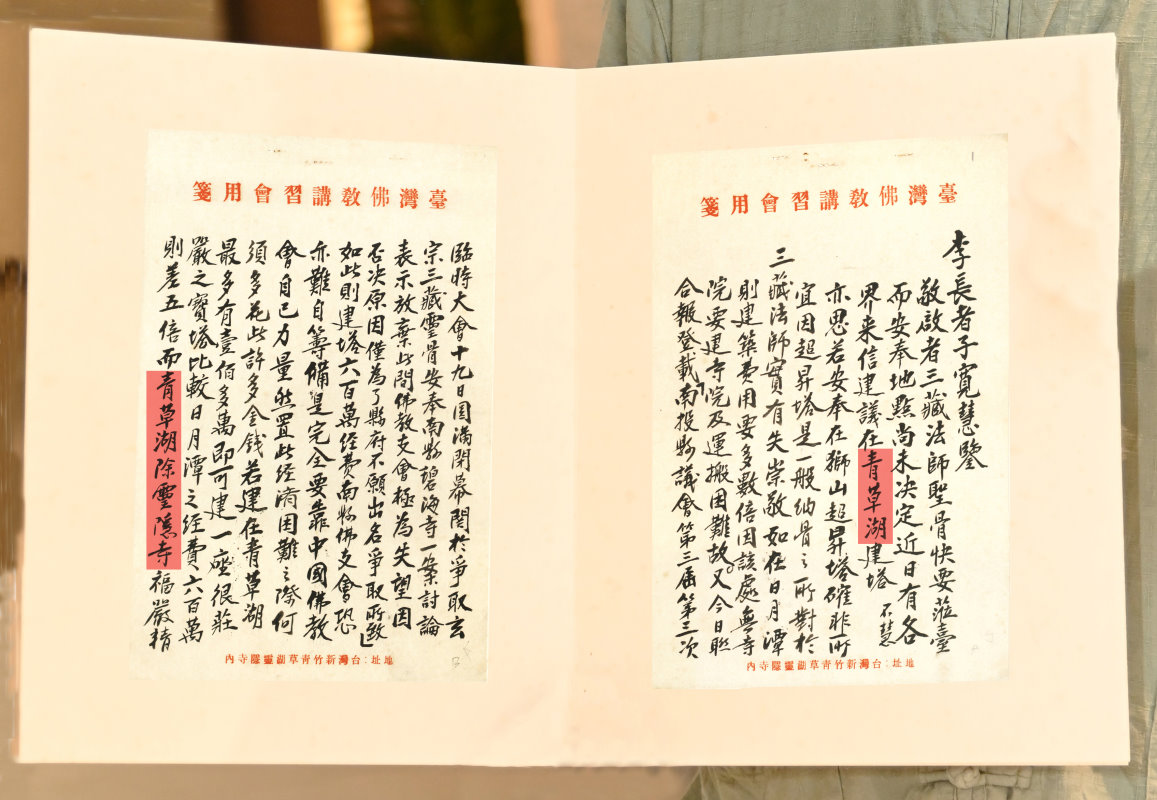 臺灣佛教講習會用箋
李長者子寬慧鑒
敬啟者三藏法師聖骨快要蒞臺
而安奉地點尚未决定近日有各
界来信建議在青草湖建塔不慧
亦思若安奉在獅山超昇塔確非所
宜因超昇塔是一般納骨之所對於
三藏法師實有失崇敬如在日月潭
則建築費用要多數倍因該處無寺
院要建寺院及運搬困難故又今日聯
合報登載「南投縣議會第三届第三次
地址:台灣新竹青草湖靈隱寺內
臺灣佛教講習會用箋
臨時大會十九日圓滿閉幕関於爭取玄
宗三藏霊骨安奉南縣碧海寺一案討論
表示放棄此間佛教支會極為失望因
否决原因僅為了縣府不願出名爭取所致」
如此則建塔六百萬経費南縣佛支會恐
亦難自籌備是完全要靠中國佛教
會自己力量然置此経濟困難之際何
須多花此許多金錢若建在青草湖
最多有壹佰多萬即可建一座很莊
嚴之寶塔比較日月潭之経費六百萬
則差五倍而青草湖除霊隱寺福嚴精
地址:台灣新竹青草湖靈隱寺內